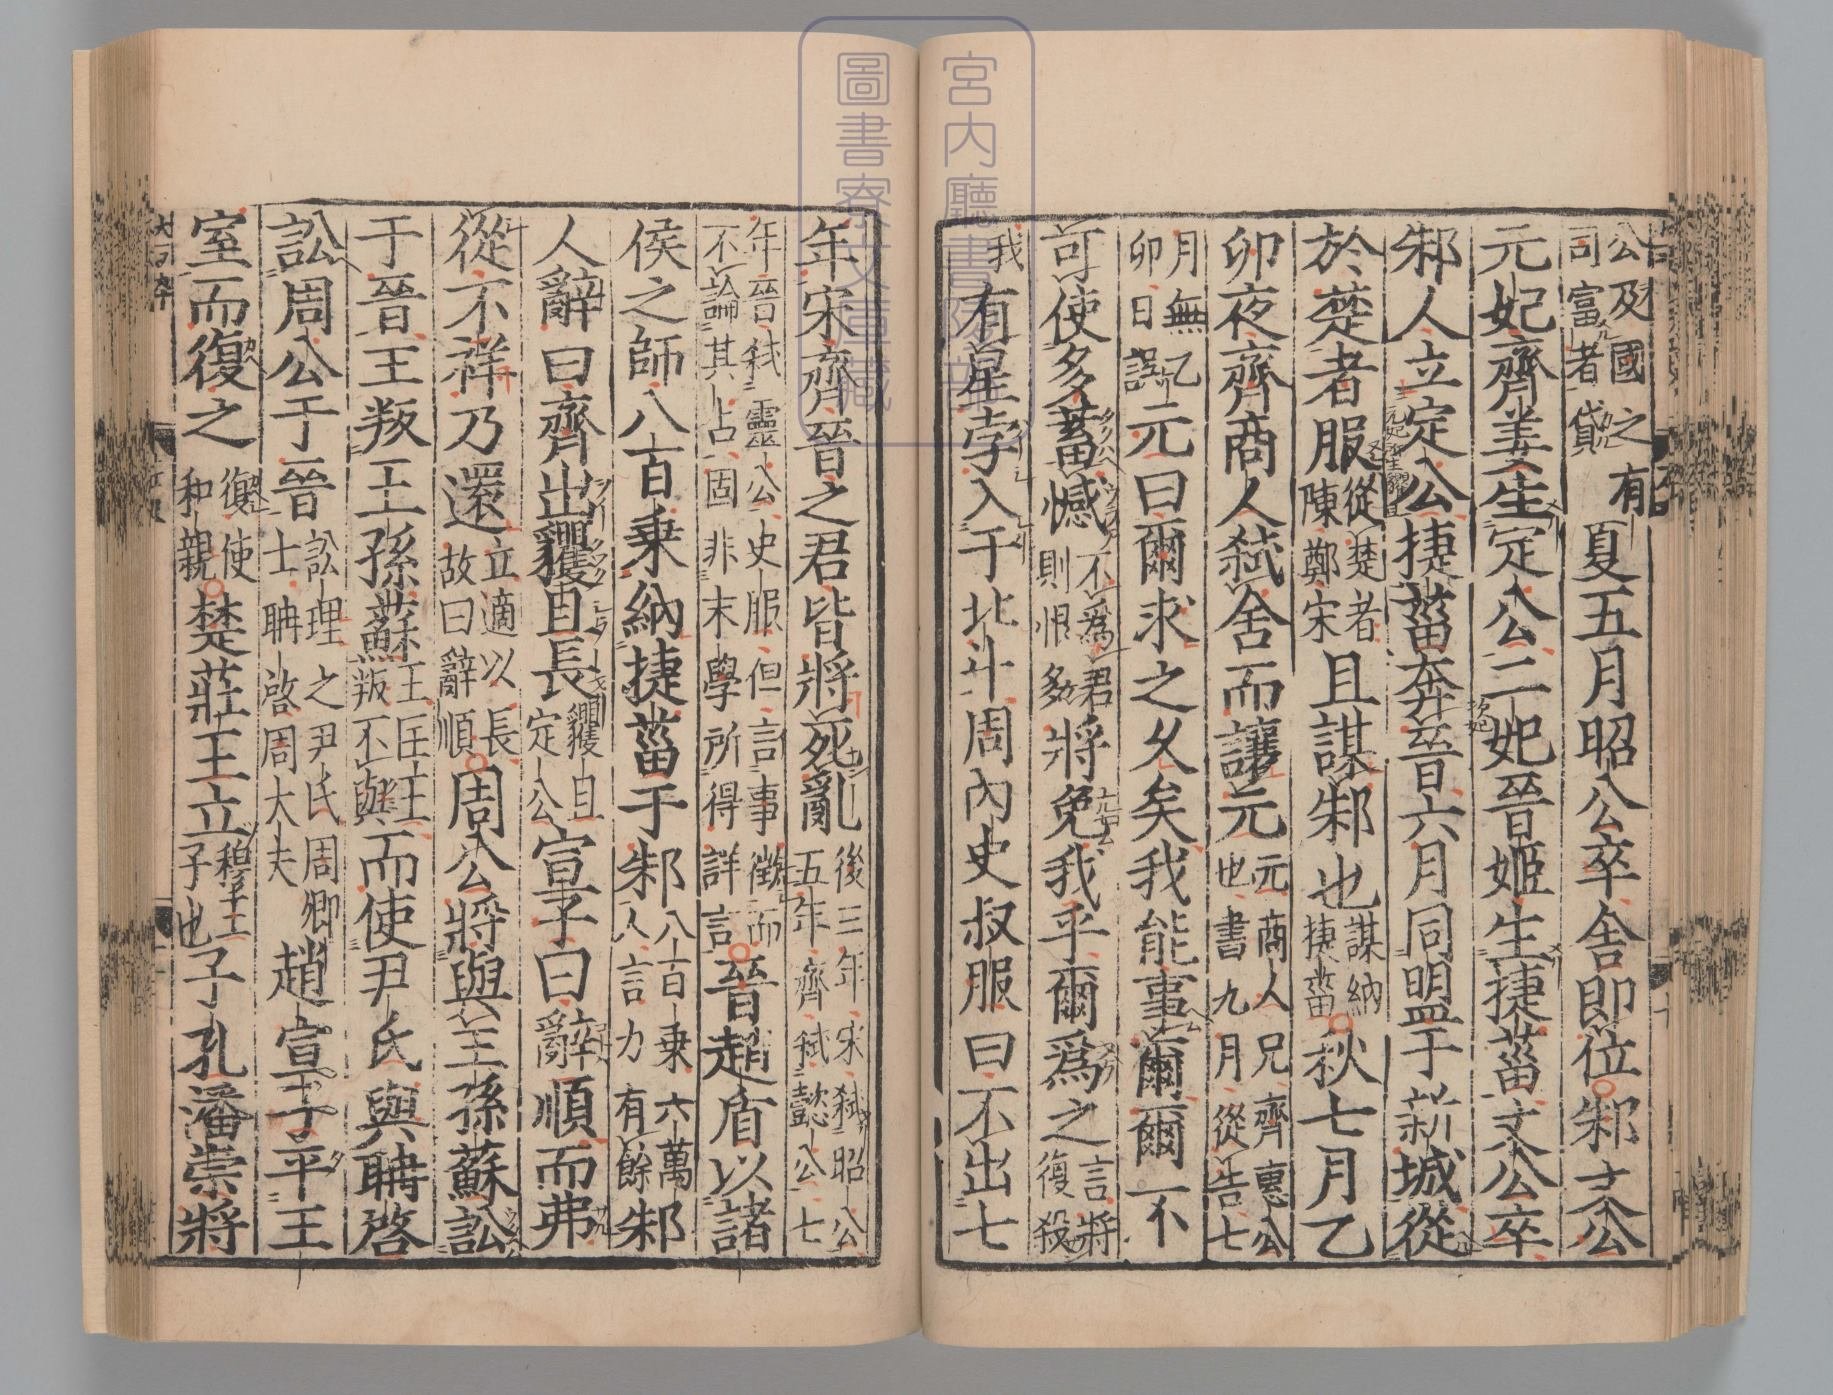 公及國之有司富者貸夏五月昭公卒舍即位邾文公
元妃齊姜生定公二妃晉姬生捷菑文公卒
邾人立定公捷菑奔晉六月同盟于新城從
於楚者服從楚者陳鄭宋且謀邾也謀納捷菑秋七月乙
卯夜齊商人弒舍而讓元元商人兄齊惠公也書九月從告七
月無乙卯日誤元曰爾求之久矣我能事爾爾不
可使多蓄憾不爲君則恨多將免我乎爾爲之言將復殺
我有星孛入于北斗周內史叔服曰不出七
年宋齊晉之君皆將死亂後三年宋弒昭公五年齊弒懿公七
年晉弒靈公史服但言事徵而不論其占固非末學所得詳言晉趙盾以諸
侯之師八百乘納捷菑于邾八百乘六萬人言力有餘邾
人辭曰齊出貜且長貜且定公宣子曰辭順而弗
從不祥乃還立適以長故曰辭順周公將與王孫蘇訟
于晉王叛王孫蘇王匡王叛不與而使尹氏與聃啓
訟周公于晉訟理之尹氏周卿士聃啓周大夫趙宣子平王
室而復之復使和親楚莊王立穆王子也子孔潘崇將
宮内廳書陵部
圖書寮文庫藏